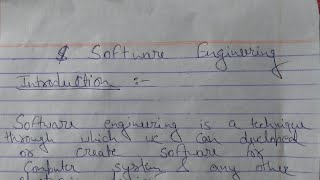 Software Engineering
Introduction :-
Software engineering is a technique
through which we can dveloped
or create software for
Computer system & any other